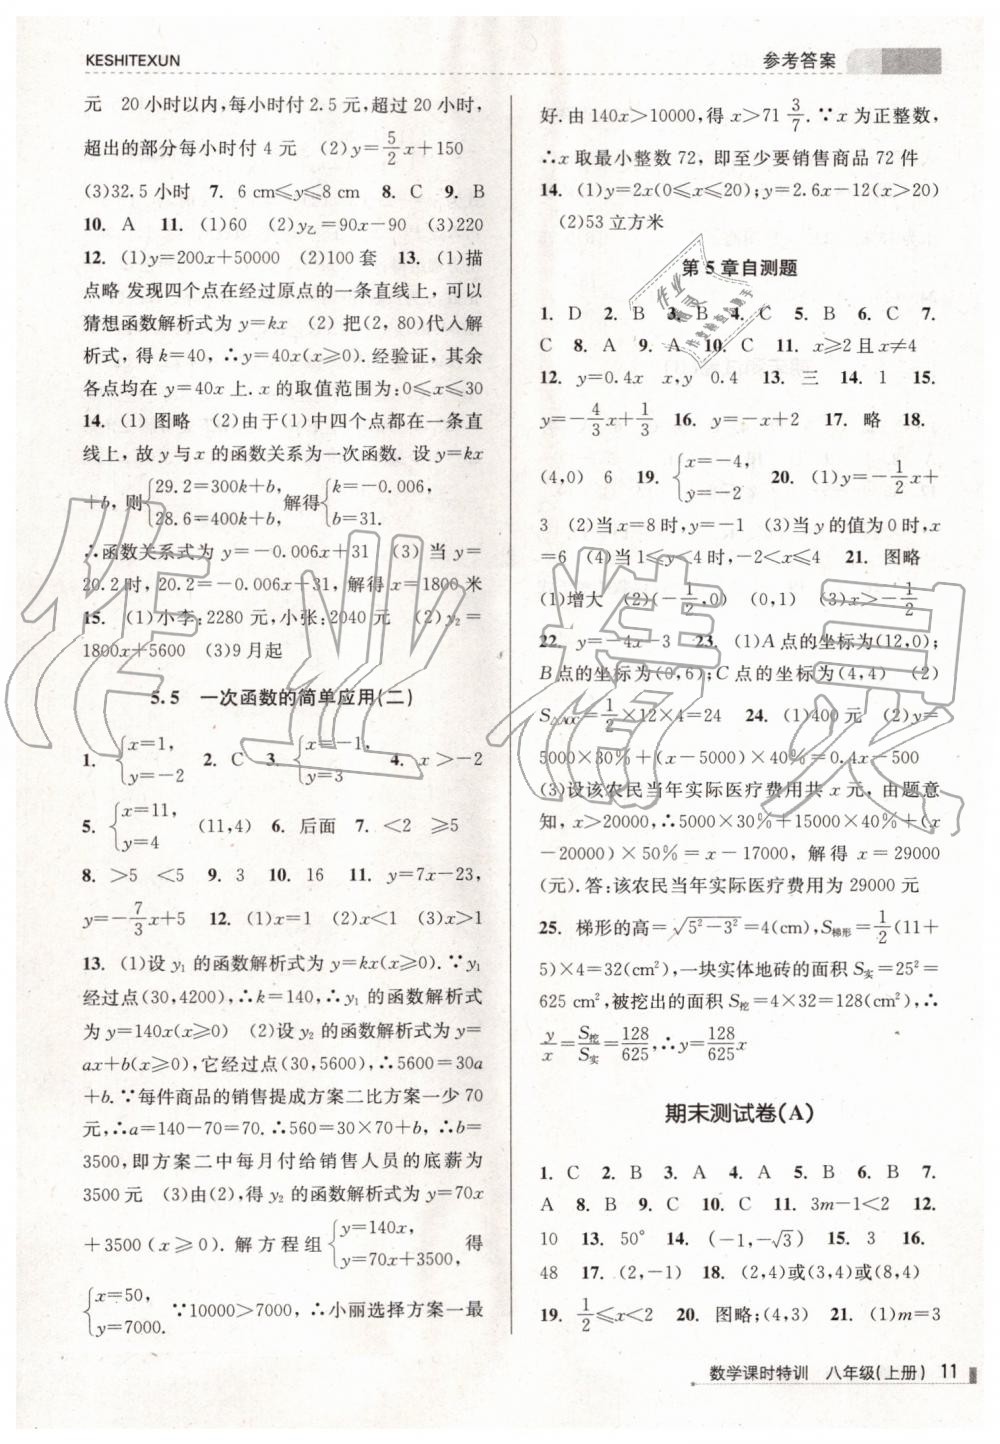 KESHITEXUN
参考答案
元 20小时以内,每小时付2.5元,超过20小时,
超出的部分每小时付4元 (2)y=5/2x+150
(3)32.5小时 7. 6 cm≤y≤8 cm 8. C 9. B
10. A 11. (1)60 (2)y乙=90x-90 (3)220
12. (1)y=200x+50000 (2)100套 13. (1)描
点略 发现四个点在经过原点的一条直线上,可以
猜想函数解析式为y=kx (2) 把(2,80)代入解
析式,得k=40,∴y=40x(x≥0).经验证,其余
各点均在y=40x上.x的取值范围为:0≤x≤30
14. (1) 图略 (2)由于(1)中四个点都在一条直
线上,故y与x的函数关系为一次函数.设y=kx
+b,则{29.2=300k+b, 28.6=400k+b, 解得{k=-0.006, b=31.
∴函数关系式为y=-0.006x+31 (3) 当y=
20.2时,20.2=-0.006x+31,解得x=1800米
15. (1)小李:2280元,小张:2040元 (2)y₂=
1800x+5600 (3)9月起
5.5 一次函数的简单应用(二)
1. {x=1, y=-2 2. C 3. {x=-1, y=3 4. x>-2
5. {x=11, y=4 (11,4) 6. 后面 7. <2 ≥5
8. >5 <5 9. 3 10. 16 11. y=7x-23,
y=-7/3x+5 12. (1)x=1 (2)x<1 (3)x>1
13. (1)设y₁的函数解析式为y=kx(x≥0).∵y₁
经过点(30,4200),∴k=140,∴y₁的函数解析式
为y=140x(x≥0) (2)设y₂的函数解析式为y=
ax+b(x≥0),它经过点(30,5600),∴5600=30a
+b.∵每件商品的销售提成方案二比方案一少70
元,∴a=140-70=70.∴560=30×70+b,∴b=
3500,即方案二中每月付给销售人员的底薪为
3500元 (3)由(2),得y₂的函数解析式为y=70x
+3500(x≥0).解方程组{y=140x, y=70x+3500, 得
{x=50, y=7000. ∵10000>7000,∴小丽选择方案一最
好.由140x>10000,得x>71 3/7.∵x为正整数,
∴x取最小整数72,即至少要销售商品72件
14. (1)y=2x(0≤x≤20);y=2.6x-12(x>20)
(2)53立方米
第5章自测题
1. D 2. B 3. B 4. C 5. B 6. C 7.
C 8. A 9. A 10. C 11. x≥2且x≠4
12. y=0.4x x,y 0.4 13. 三 14. 1 15.
y=-4/3x+1/3 16. y=-x+2 17. 略 18.
(4,0) 6 19. {x=-4, y=-2 20. (1)y=-1/2x+
3 (2)当x=8时,y=-1 (3)当y的值为0时,x
=6 (4)当1≤y<4时,-2<x≤4 21. 图略
(1)增大 (2)(-1/2,0) (0,1) (3)x>-1/2
22. y=-4x-3 23. (1)A点的坐标为(12,0);
B点的坐标为(0,6);C点的坐标为(4,4) (2)
S△AOC=1/2×12×4=24 24. (1)400元 (2)y=
5000×30%+(x-5000)×40%=0.4x-500
(3)设该农民当年实际医疗费用共x元,由题意
知,x>20000,∴5000×30%+15000×40%+(x
-20000)×50%=x-17000,解得x=29000
(元).答:该农民当年实际医疗费用为29000元
25. 梯形的高=√(5²-3²)=4(cm),S梯形=1/2(11+
5)×4=32(cm²),一块实体地砖的面积S实=25²=
625 cm²,被挖出的面积S挖=4×32=128(cm²),∴
y/x=S挖/S实=128/625,∴y=128/625x
期末测试卷(A)
1. C 2. B 3. A 4. A 5. B 6. B 7.
A 8. B 9. C 10. C 11. 3m-1<2 12.
10 13. 50° 14. (-1,-√3) 15. 3 16.
48 17. (2,-1) 18. (2,4)或(3,4)或(8,4)
19. 1/2≤x<2 20. 图略;(4,3) 21. (1)m=3
数学课时特训 八年级(上册) 11
作业精灵